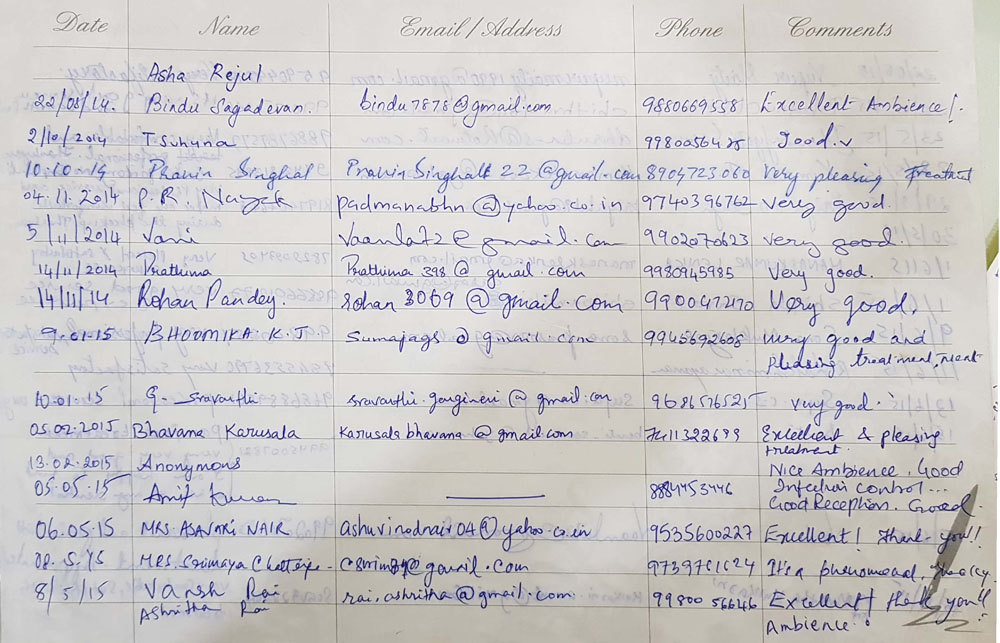 Date Name Email / Address Phone Comments
Asha Rejul
22/08/14. Bindu Sagadevan. bindu7878@gmail.com 9880669558 Excellent Ambience!
2/10/2014 T Suhyna Good.
10.10.14 Pravin Singhal 22@gmail.com 8904723060 Very pleasing treatment
04.11.2014 P.R. Nayak padmanabhn@yahoo.co.in 9740396762 Very good.
5/11/2014 Vani Vaanla72@gmail.com 9902070623 Very good.
14/11/2014 Prathima Prathima398@gmail.com 9980945985 Very good.
14/11/14 Rohan Pandey. rohan3069@gmail.com 9900472170 Very good.
9-01-15 BHOOMIKA.K.J sumajags@gmail.com 9945692608 very good and
pleasing treatment,
10.01.15 G. Sravanthi sravanthi.gangineni@gmail.com 9686576525 Very good.
05.02.2015 Bhavana Karusala karusalabhavana@gmail.com 7411322699 Excellent & pleasing
treatment.
13.02.2015 Anonymous Nice Ambience. Good
05.05.15 Amit Kumar 8884453446 Infection control...
Good Reception. Good.
06.05.15 MRS ASAVARI NAIR ashuvinodnair04@yahoo.co.in 9535600227 Excellent! Thank you!!
08.5.15 MRS. Srimaya @gmail.com 9739761624 It's a
8/5/15 Vansh Rai rai.ashritha@gmail.com 99800 56646 Excellent! thank you!!
Ashritha Rai Ambience!